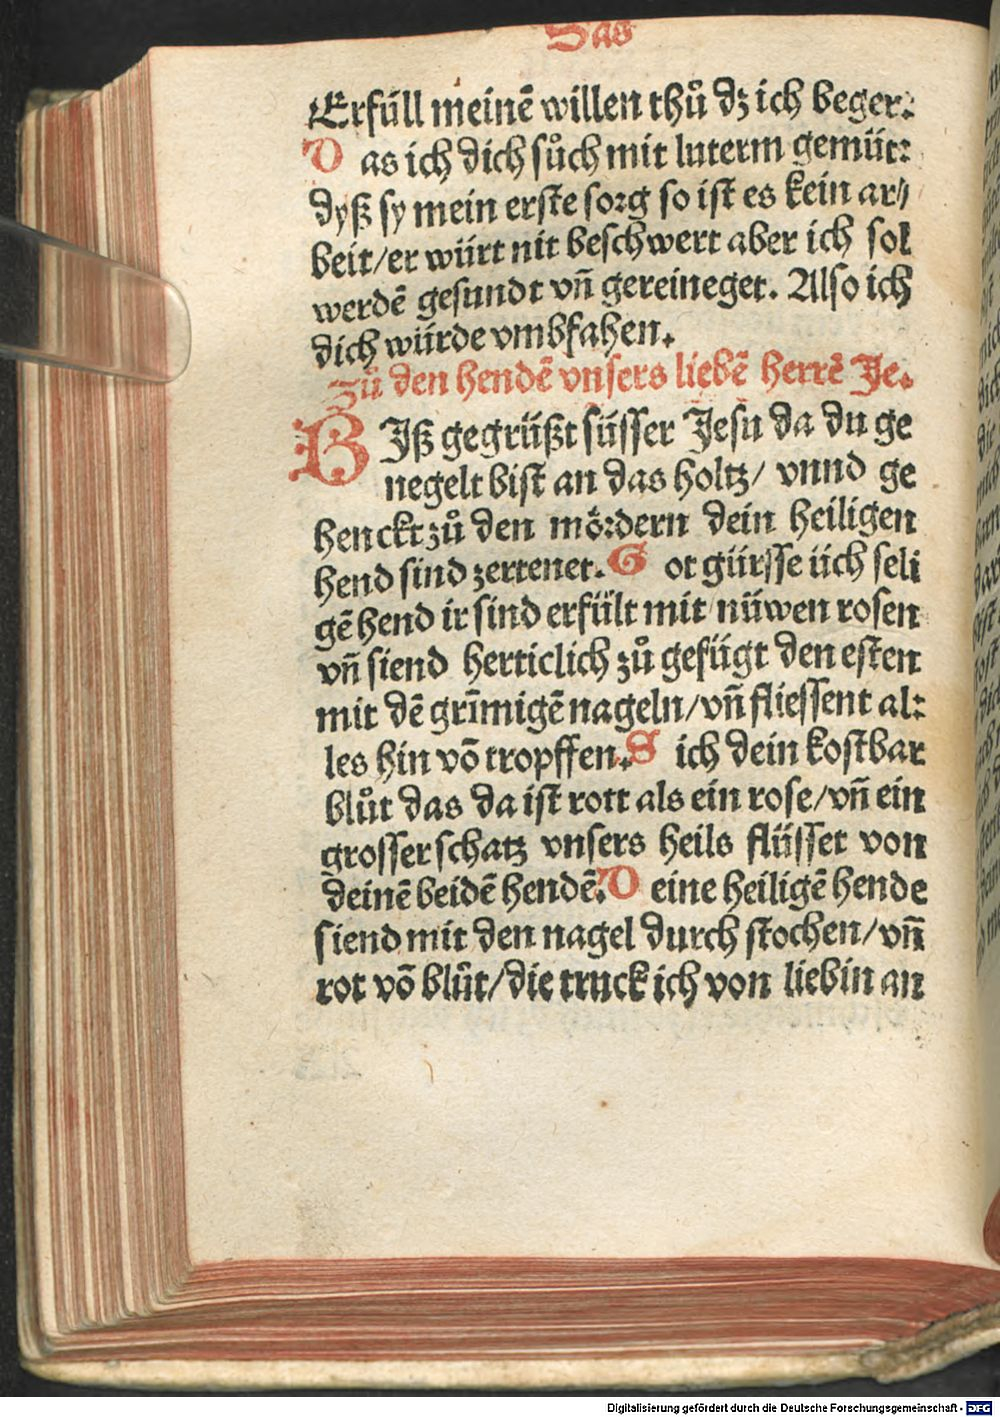 Das
Erfüll meinē willen thů dz ich beger.
Das ich dich sůch mit luterm gemüt:
dyß sy mein erste sorg so ist es kein ar/
beit/er würt nit beschwert aber ich sol
werdē gesundt vñ gereineget. Also ich
dich würde vmbfahen.
Zů den hendē vnsers liebē herrē Je.
BJß gegrüßt süsser Jesu da du ge
negelt bist an das holtz/ vnnd ge
henckt zů den mördern dein heiligen
hend sind zertenet. Got gürsse üch seli
gē hend ir sind erfült mit nüwen rosen
vñ siend herticlich zů gefügt den esten
mit dē grīmigē nageln/vñ fliessent al:
les hin vō tropffen. Sich dein kostbar
blůt das da ist rott als ein rose/vñ ein
grosser schatz vnsers heils flüsset von
deinē beidē hendē. Deine heiligē hende
siend mit den nagel durch stochen/vñ
rot vō blůt/die truck ich von liebin an
Digitalisierung gefördert durch die Deutsche Forschungsgemeinschaft - DFG